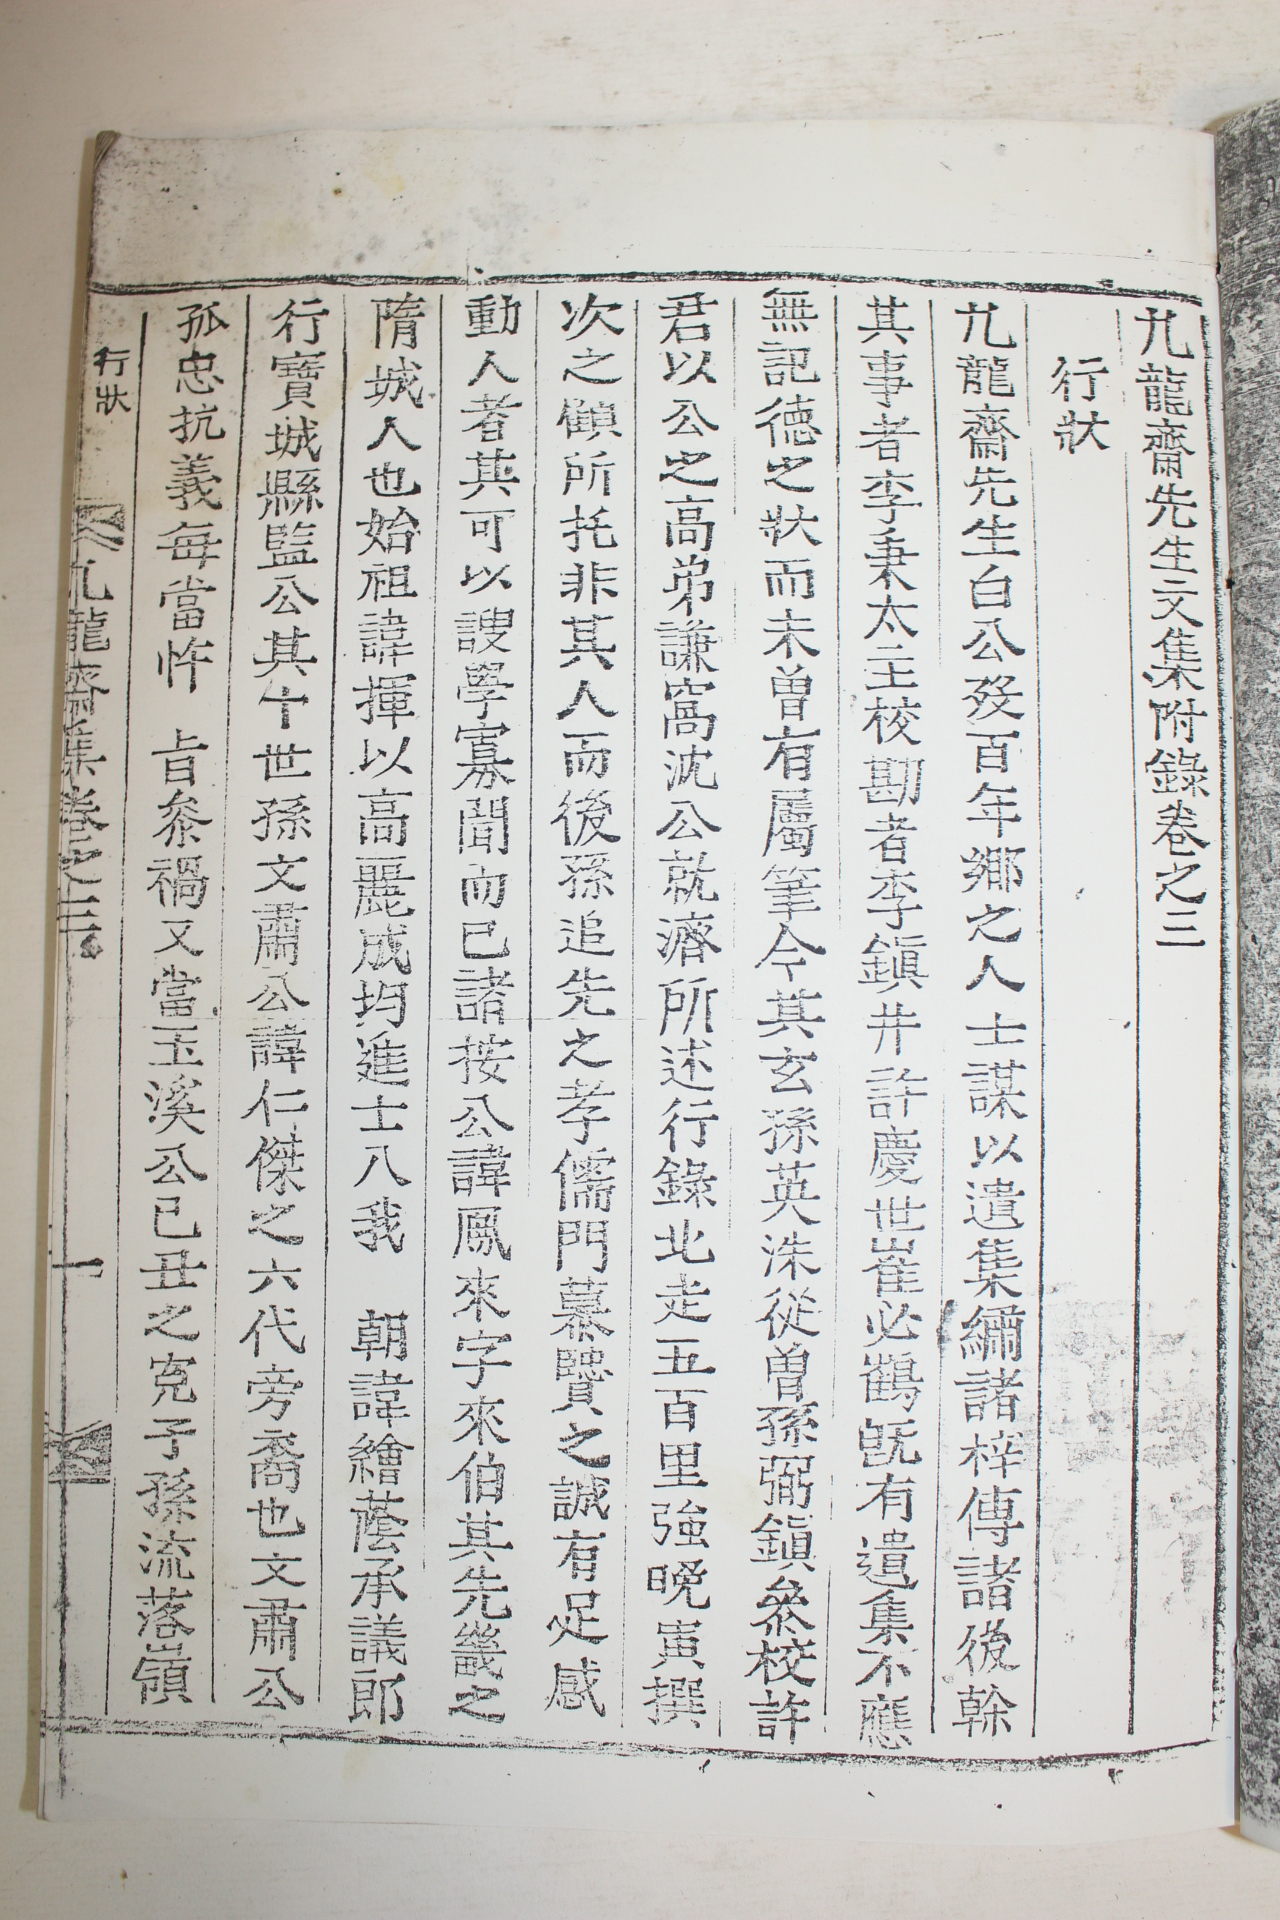 九龍齋先生文集附錄卷之三
行狀
九龍齋先生白公歿百年鄉之人士謀以遺集繡諸梓傳諸後幹
其事者李秉太主校勘者李鎭井許慶世崔必鶴旣有遺集不應
無記德之狀而未曾有屬筆今其玄孫英洙從曾孫弼鎭叅校許
君以公之高弟謙窩沈公就濟所述行錄北走五百里強晚寅撰
次之顧所托非其人而後孫追先之孝儒門慕賢之誠有足感
動人者其可以謏學寡聞而已諸按公諱鳳來字來伯其先畿之
隋城人也始祖諱揮以高麗成均進士入我 朝諱繪蔭承議郎
行寶城縣監公其十世孫文肅公諱仁傑之六代旁裔也文肅公
孤忠抗義每當忤 旨叅禍又當玉溪公己丑之寃子孫流落嶺
行狀
九龍齋集卷之三
一